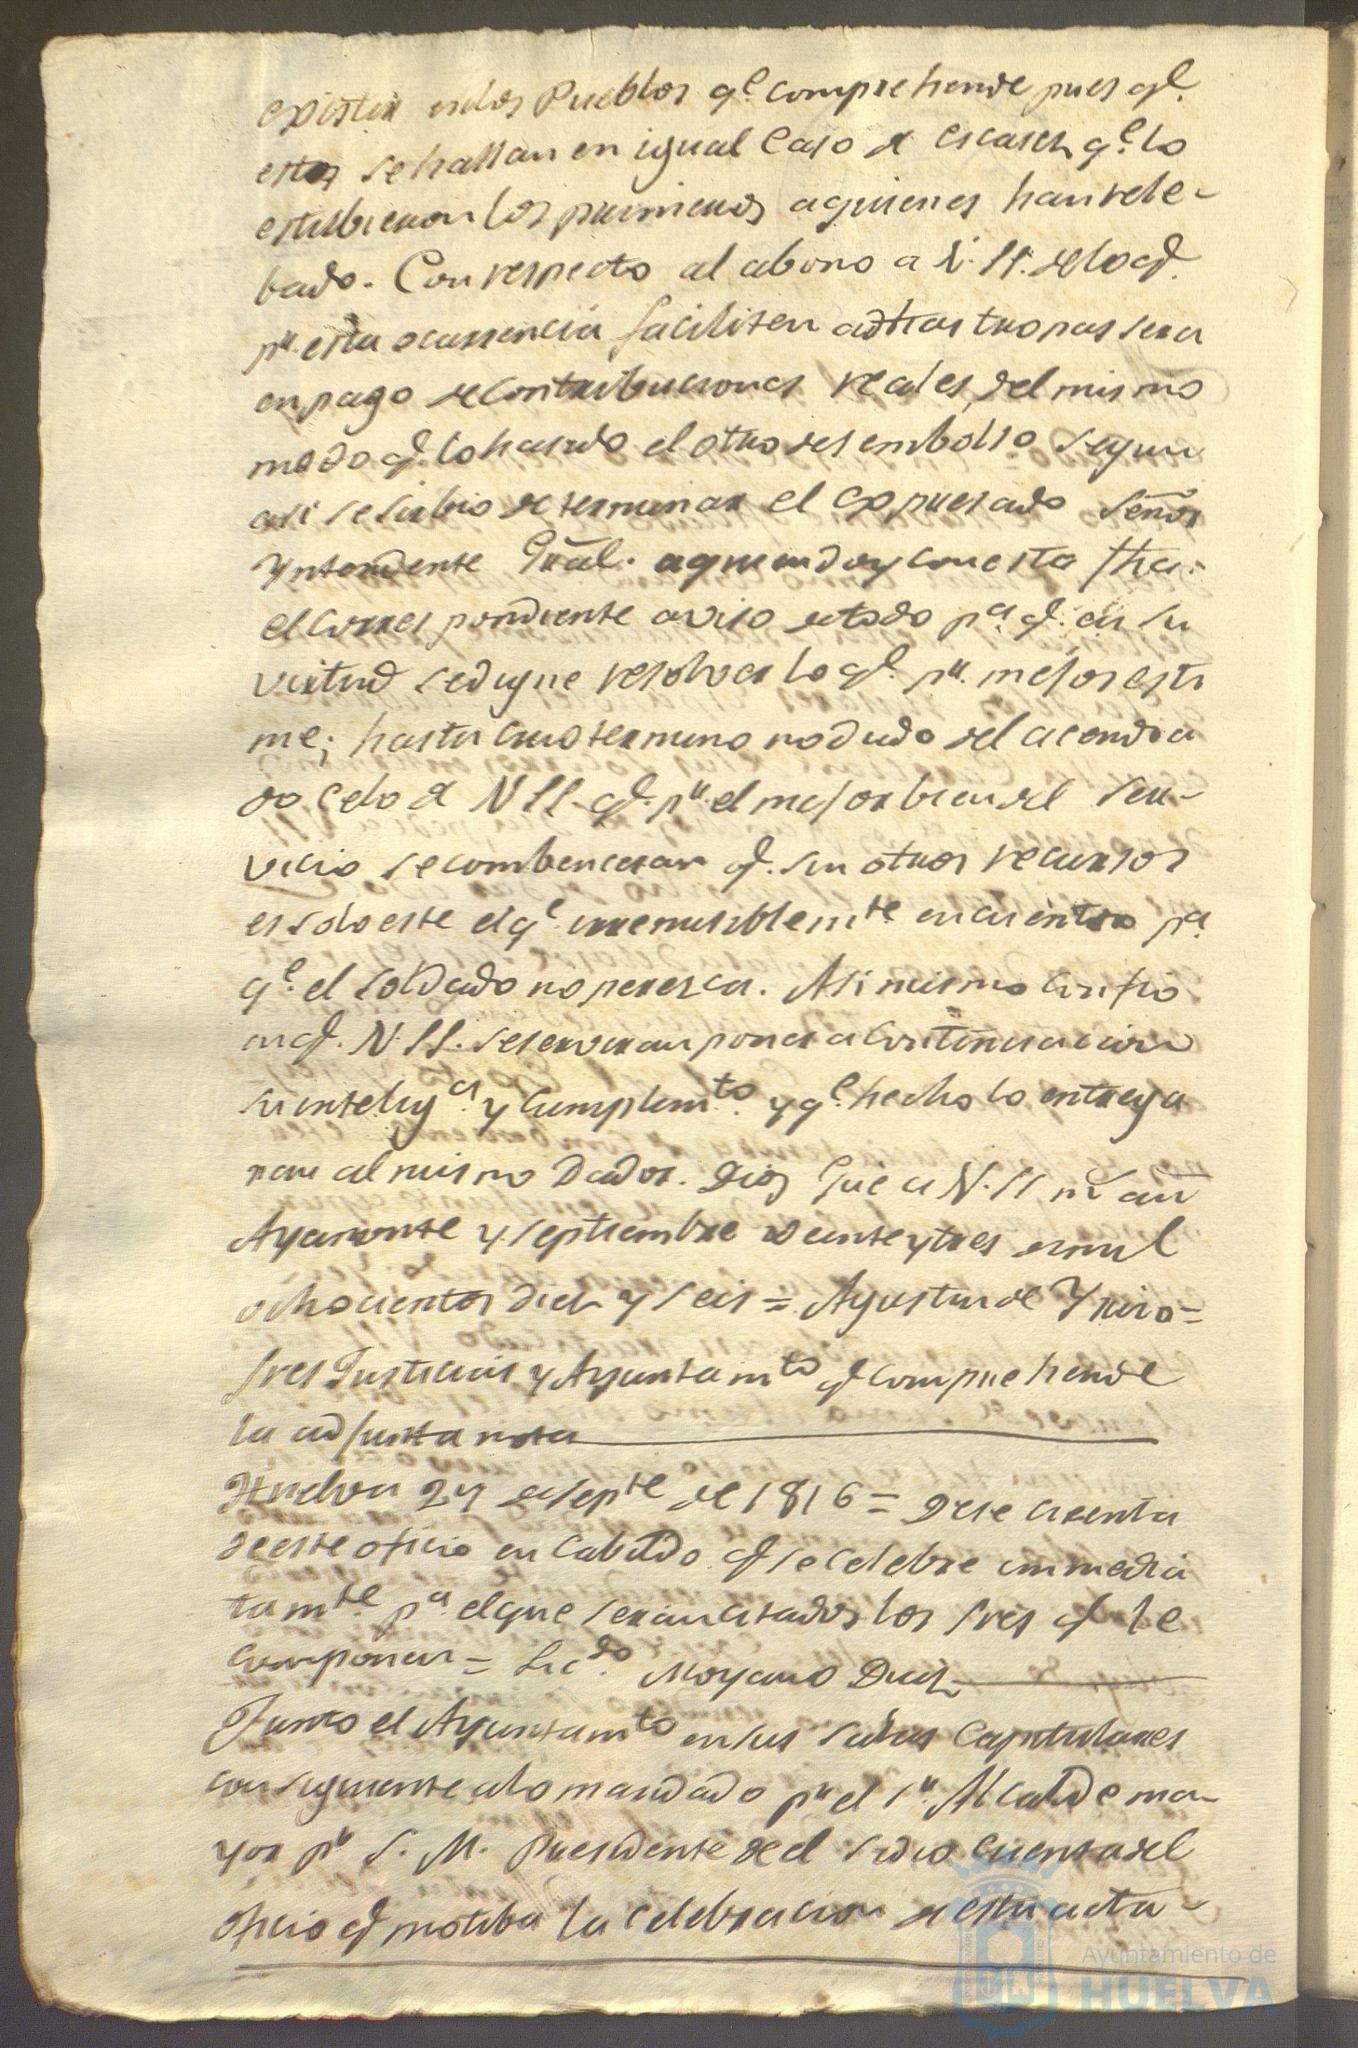 existen en los Pueblos q.e comprehende pues q.e
estos se hallan en igual caso de escasez q.e lo
estubieron los primeros a quienes han rele-
bado. Con respecto al abono a V. SS. de lo q.e
p.r esta ocurrencia faciliten a dhas tropas sera
en pago de contribuciones reales, del mismo
modo q.e lo ha sido el otro desembolso segun
asi se sirbio determinar el expresado Señor
Yntendente Gral. a quien doy con esta fha.
el correspondiente aviso de todo p.a q.e en su
virtud se digne resolver lo q.e p.r mejor esti
me; hasta cuio termino no dudo del acendra
do celo de V SS. q.e p.r el mejor bien del ser-
vicio se combenceran q.e sin otros recursos
es solo este el q.e irremisiblem.te encuentro p.a
q.e el soldado no peresca. Asi mismo confio
en q.e V. SS. se serviran poner a continuacion
su intelig.a y cumplim.to y q.e hecho lo entrega
ran al mismo Dador. Dios Gue a V. SS m.s an.s
Ayamonte y septiembre veinte y tres de mil
ochocientos diez y seis = Agustin de
Sres Justicias y Ayuntam.to q.e comprehende
la adjunta nota
Huelva 24 de sep.te de 1816 = Dese cuenta
de este oficio en Cabildo q.e se celebre inmedia
tam.te p.a el que seran citados los Sres q.e le
componen = Lic.do Moyano Diez
Junto el Ayuntam.to en sus Salas Capitulares
consiguiente a lo mandado p.r el S.r Alcalde ma-
yor p.r S. M. Presidente de el se dio cuenta del
oficio q.e motiba la celebracion de esta acta-
Ayuntamiento de
HUELVA